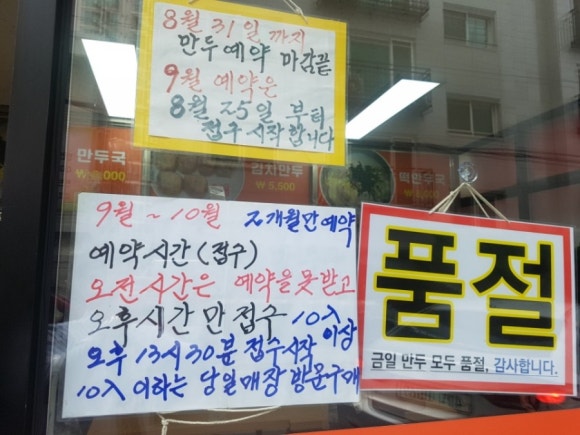 8월 31일까지
만두예약 마감끝
9월 예약은
8월 25일 부터
접수 시작합니다
만두국
김치만두
₩5,500
떡만두국
9월 ~ 10월 2개월만예약
예약시간(접수)
오전시간은 예약을못받고
오후시간만접수 10人이상
오후 13시30분 접수시작
10人 이하는 당일매장 방문구매
품절
금일 만두 모두 품절, 감사합니다.